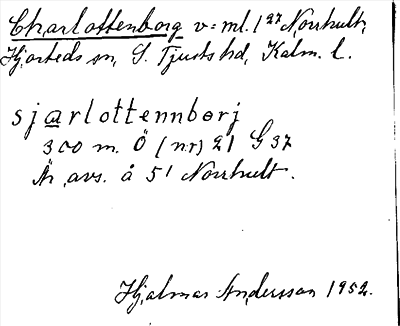 Charlottenborg v=ml. 1 27 Norrhult,
Hjorteds sn, S. Tjusts hd, Kalm. l.
sjarlottennborj
300 m. Ö (nr) 21 G 37
Är avs. å 51 Norrhult.
Hjalmar Andersson 1952.